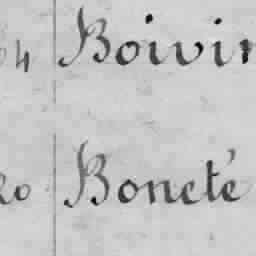 04 Boivin
20 Boncté